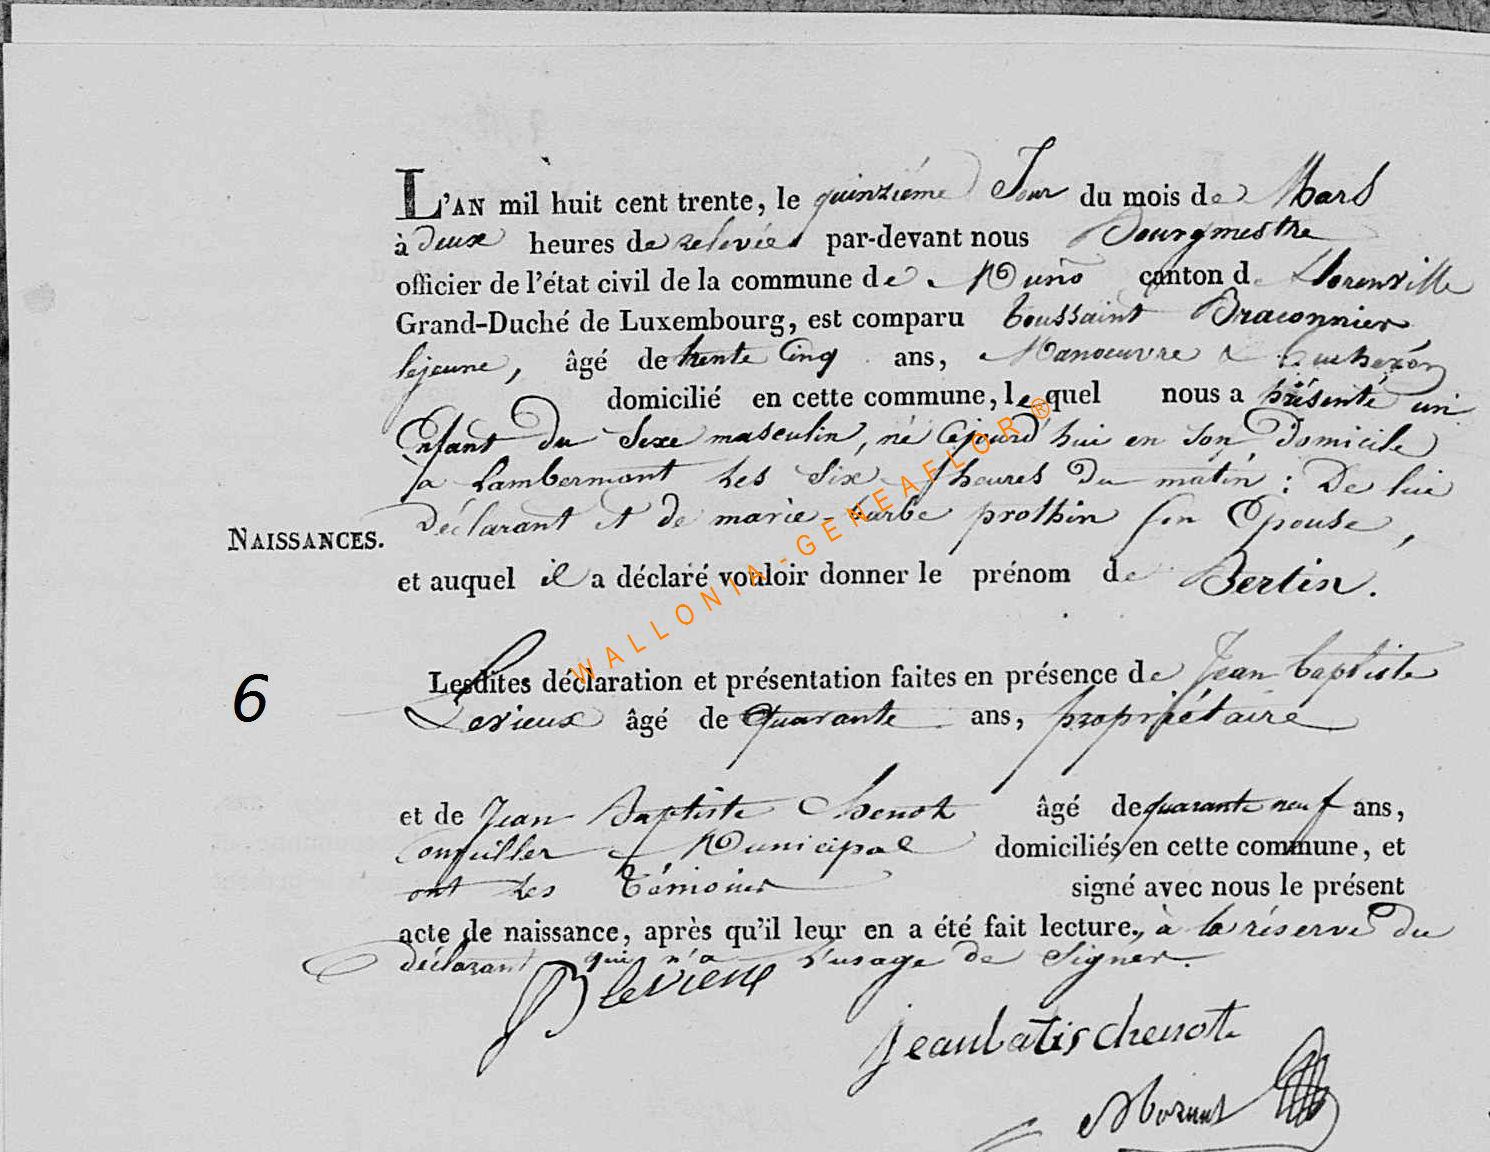 L'AN mil huit cent trente, le quinziéme Jour du mois de Mars
à deux heures de relevée par-devant nous Bourgmestre
officier de l'état civil de la commune de Muno canton de florenville
Grand-Duché de Luxembourg, est comparu toussaint Braconnier
lejeune, âgé de trente Cinq ans, Manoeuvre
domicilié en cette commune, lequel nous a présenté un
Enfant du sexe masculin, né cejourd'hui en son Domicile
a Lambermont les six heures du matin : De lui
Déclarant et de marie-barbe prothin son Epouse,
NAISSANCES.
et auquel il a déclaré vouloir donner le prénom de Bertin.
6
Lesdites déclaration et présentation faites en présence de Jean baptiste
Levieux âgé de Quarante ans, propriétaire
et de Jean Baptiste Chenot âgé de quarante neuf ans,
Conseiller Municipal domiciliés en cette commune, et
ont les Témoins signé avec nous le présent
acte de naissance, après qu'il leur en a été fait lecture, à la réserve du
déclarant qui n'a l'usage de signer.
JB levieux
jeanbatis chenot
WALLONIA-GENEAFLOR®